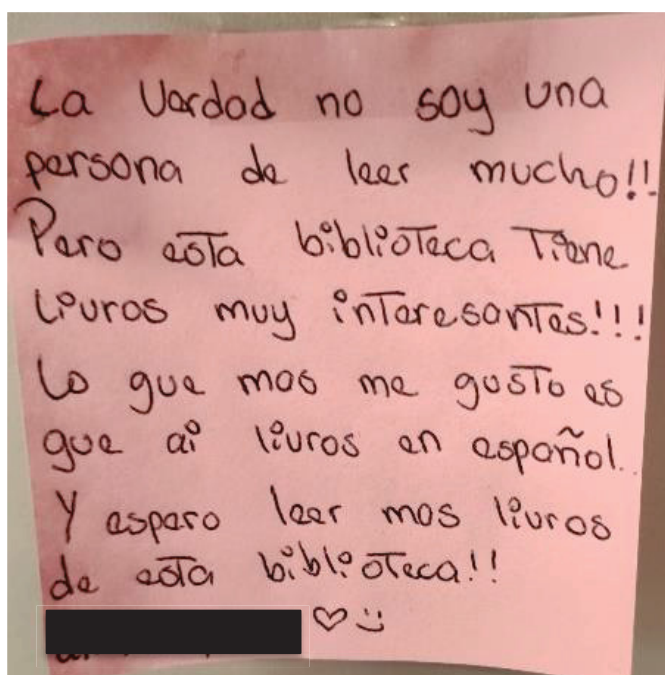 La Verdad no soy una
persona de leer mucho!!
Pero esta biblioteca Tiene
Livros muy interesantes!!!
Lo que mas me gusto es
que ai livros en español..
Y espero leer mas livros
de esta biblioteca!!